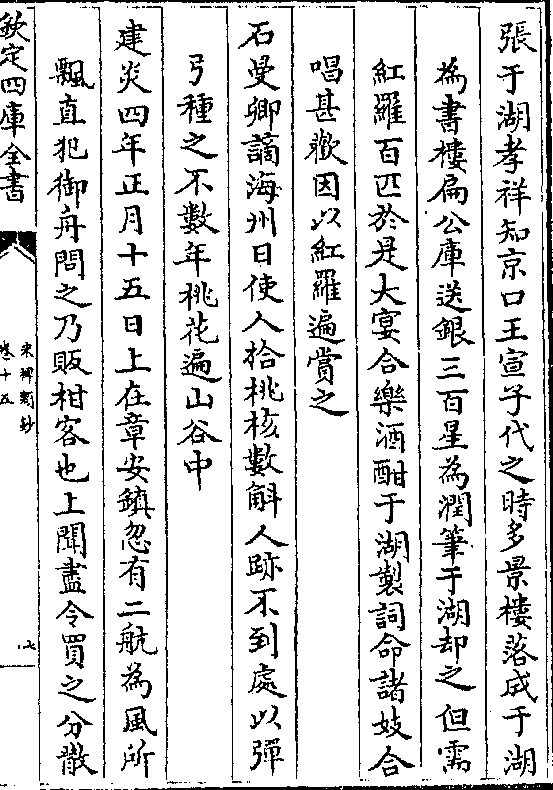 張于湖孝祥知京口王宣子代之時多景樓落成于湖
為書樓扁公庫送銀三百星為潤筆于湖却之但需
紅羅百匹於是大宴合樂酒酣于湖製詞命諸妓合
唱甚歡因以紅羅遍賞之
石曼卿謫海州日使人拾桃核數斛人跡不到處以彈
弓種之不數年桃花遍山谷中
建炎四年正月十五日上在章安鎮忽有二航為風所
飄直犯御舟問之乃販柑客也上聞盡令買之分散
欽定四庫全書
宋稗類鈔
卷十五
七